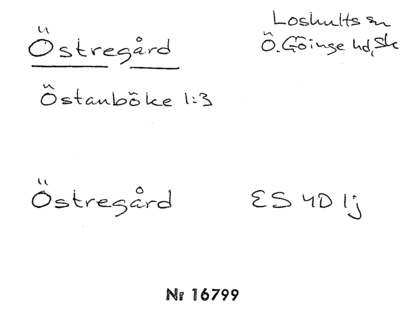 Östregård
Loshults sn
Ö. Göinge hd, Sk
Östanböke 1:3
Östregård
ES 4D 1j
Nr 16799